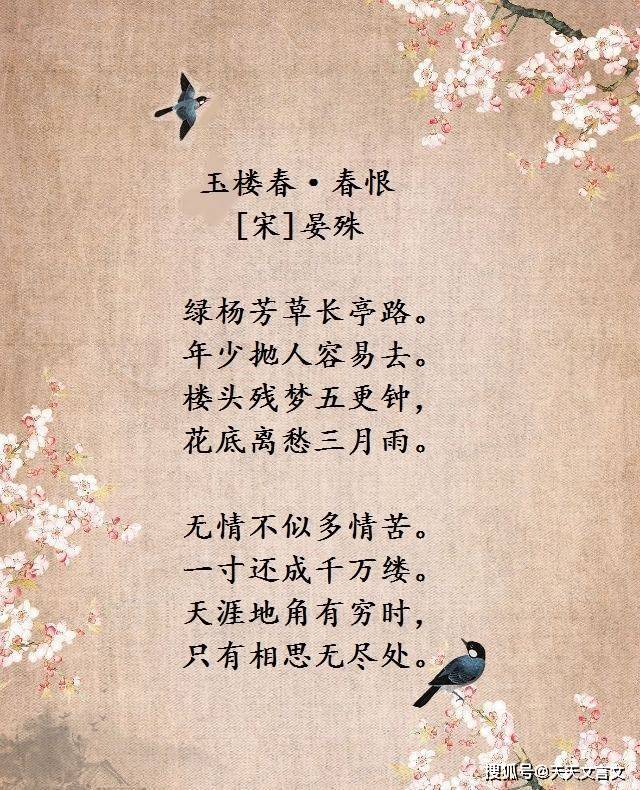 玉楼春·春恨
[宋]晏殊
绿杨芳草长亭路。
年少抛人容易去。
楼头残梦五更钟，
花底离愁三月雨。
无情不似多情苦。
一寸还成千万缕。
天涯地角有穷时，
只有相思无尽处。
搜狐号@天天文言文